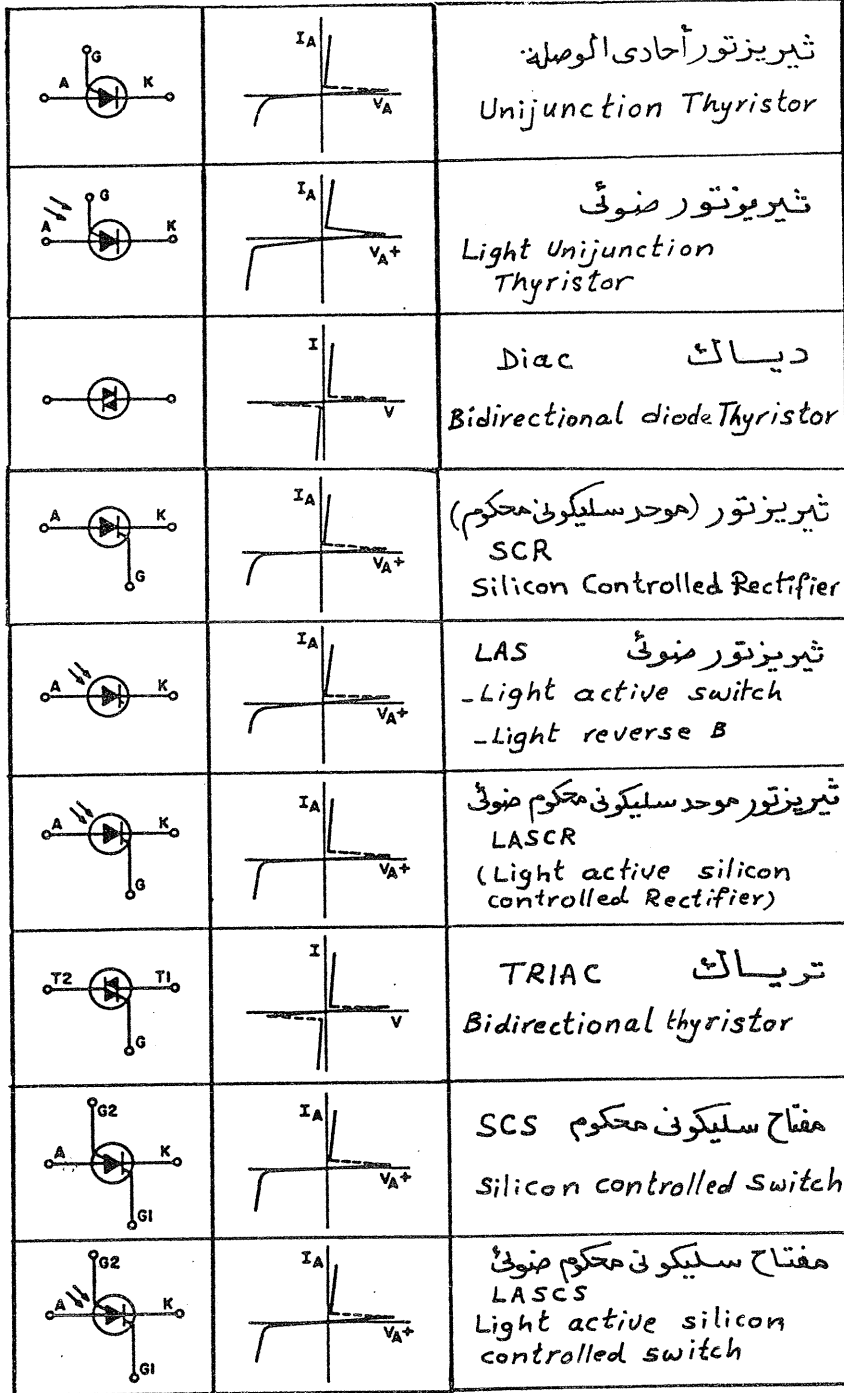 G
A K
I A
V A
ثيريزتور أحادى الوصلة
Unijunction Thyristor
G
A K
I A
V A+
ثيريزتور ضوئى
Light Unijunction
Thyristor
I
V
Diac دياك
Bidirectional diode Thyristor
A K
G
I A
V A+
ثيريزتور (موحد سليكونى محكوم)
SCR
Silicon Controlled Rectifier
A K
I A
V A+
LAS ثيريزتور ضوئى
-Light active switch
-Light reverse B
A K
G
I A
V A+
ثيريزتور موحد سليكونى محكوم ضوئى
LASCR
(Light active silicon
controlled Rectifier)
T2 T1
G
I
V
TRIAC ترياك
Bidirectional thyristor
G2
A K
G1
I A
V A+
SCS مفتاح سليكونى محكوم
Silicon controlled Switch
G2
A K
G1
I A
V A+
مفتاح سليكونى محكوم ضوئى
LASCS
Light active silicon
controlled switch